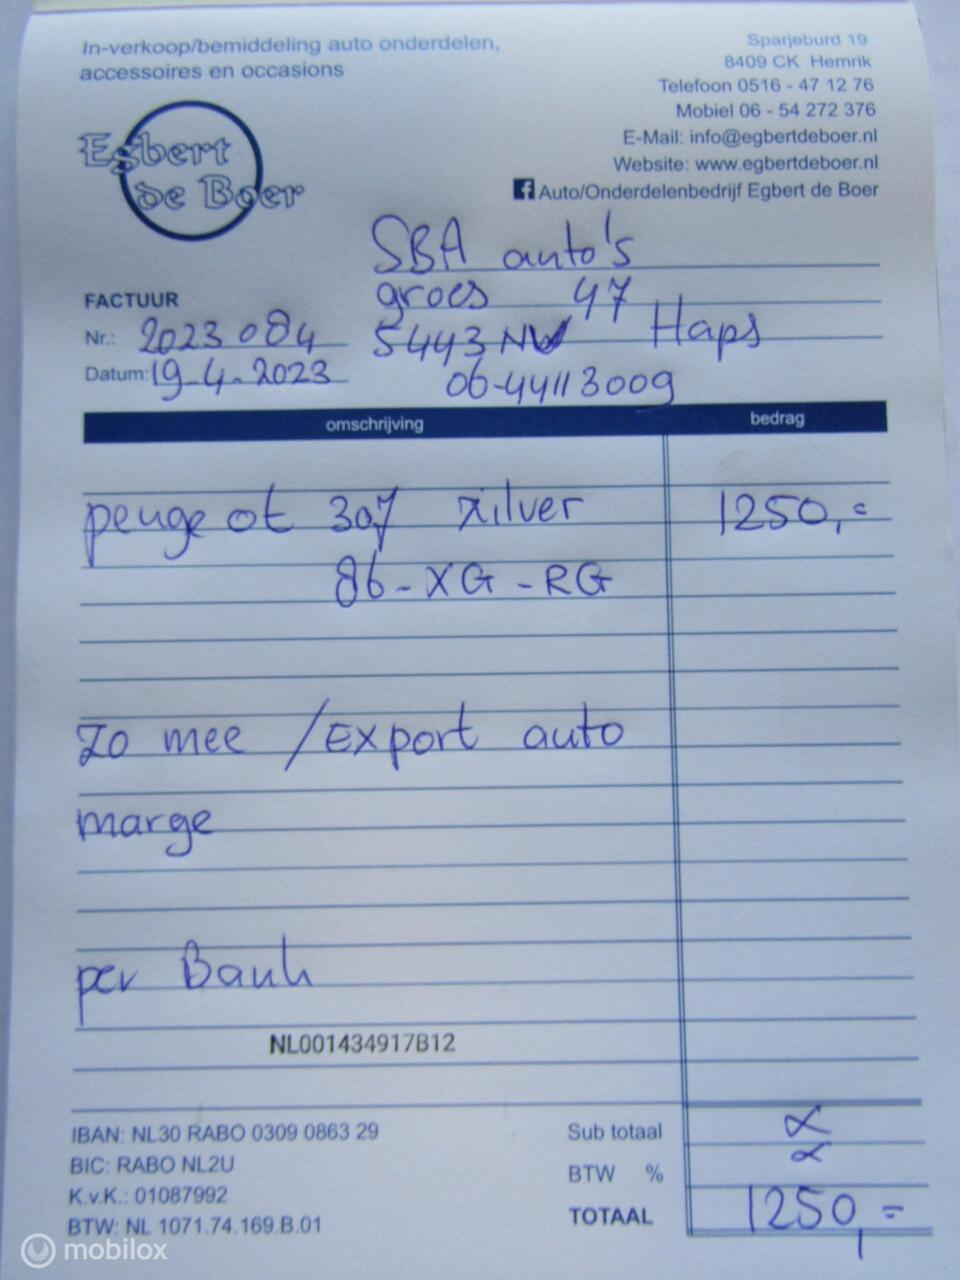 In-verkoop/bemiddeling auto onderdelen,
accessoires en occasions
Egbert
de Boer
Sparjeburd 19
8409 CK Hemrik
Telefoon 0516 - 47 12 76
Mobiel 06 - 54 272 376
E-Mail: info@egbertdeboer.nl
Website: www.egbertdeboer.nl
Auto/Onderdelenbedrijf Egbert de Boer
SBA auto's
groes 47
5443 NW Haps
06-44113009
FACTUUR
Nr.: 2023084
Datum: 19-4-2023
omschrijving bedrag
peugeot 307 zilver 1250,=
86-XG-RG
Zo mee /Export auto
marge
per Bank
NL001434917B12
IBAN: NL30 RABO 0309 0863 29
BIC: RABO NL2U
K.v.K.: 01087992
BTW: NL 1071.74.169.B.01
Sub totaal
BTW %
TOTAAL 1250,=
mobilox